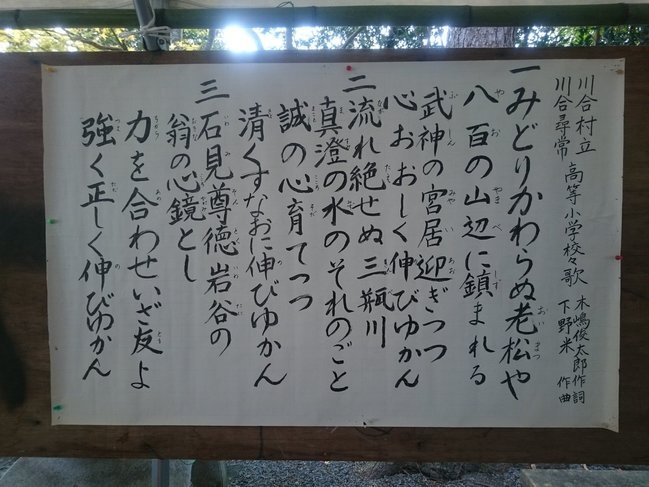 川合村立
川合尋常 高等小学校々歌 木嶋俊太郎作詞
下野米 作曲
一みどりかわらぬ老松や
八百の山辺に鎮まれる
武神の宮居迎ぎつつ
心おおしく伸びゆかん
二流れ絶せぬ三瓶川
真澄の水のそれのごと
誠の心育てつつ
清くすなおに伸びゆかん
三石見尊徳岩谷の
翁の心鏡とし
力を合わせいざ友よ
強く正しく伸びゆかん